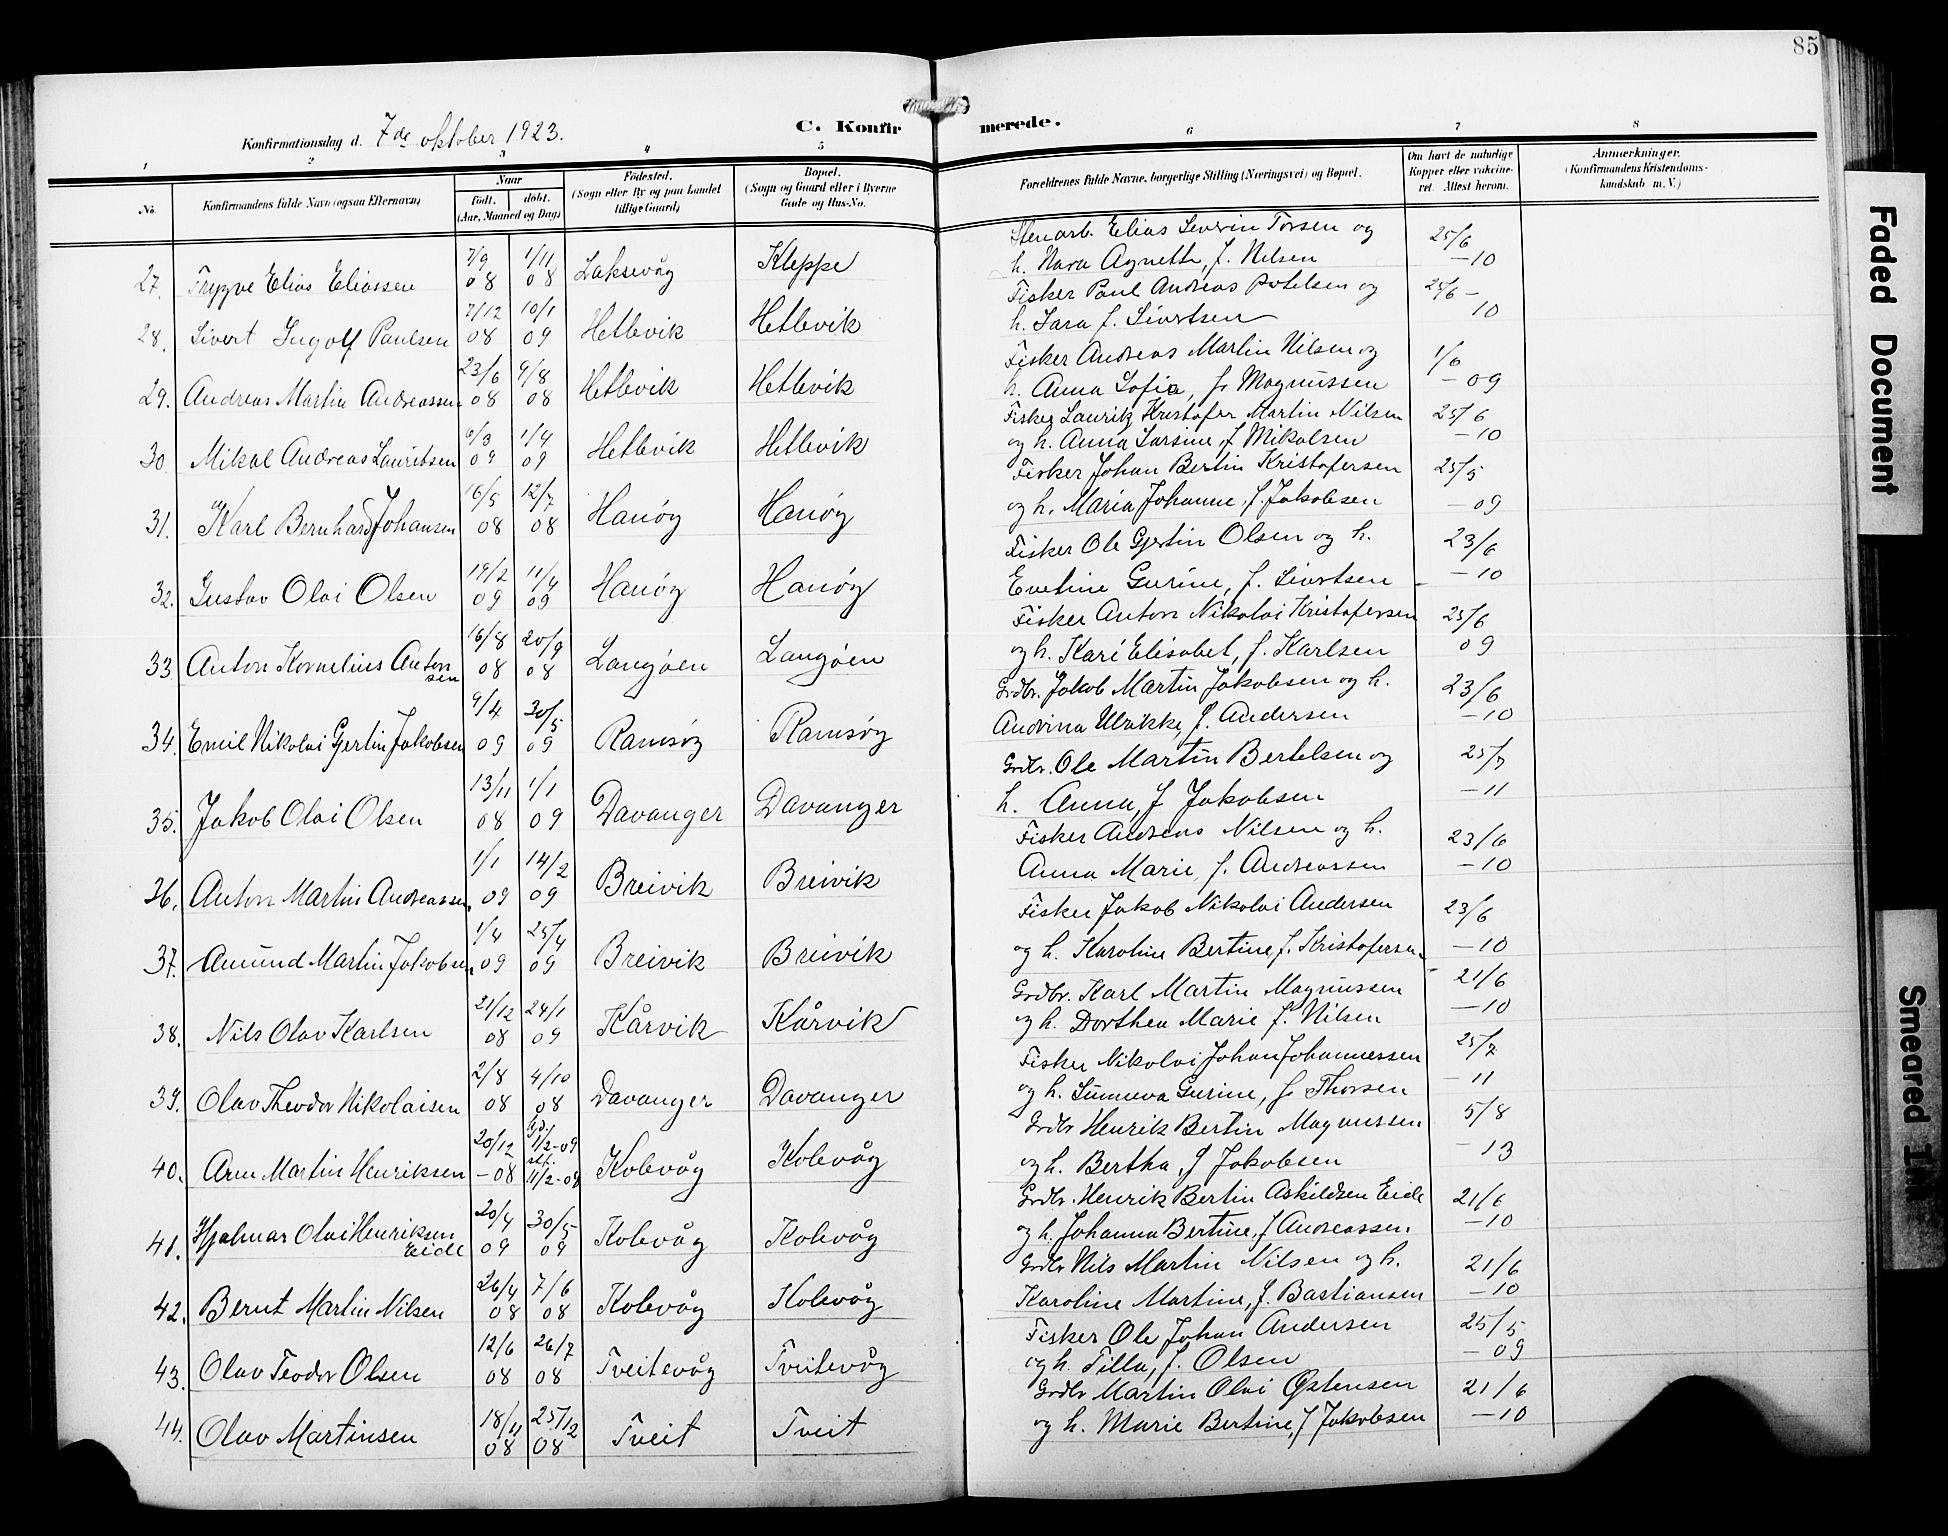 85
Konfirmationsdag d. 7de oktober 1923.
C. Konfirmerede.
1 2 3 4 5 6 7 8
No.
Konfirmandens fulde Navn (ogsaa Efternavn)
Naar
født. døbt.
(Aar, Maaned og Dag)
Fødested.
(Sogn eller By og paa Landet
tillige Gaard)
Bopæl.
(Sogn og Gaard eller i Byerne
Gade og Hus-No.
Forældrenes fulde Navne, borgerlige Stilling (Næringsvei) og Bopæl.
Om havt de naturlige
Kopper eller vakcine-
ret. Attest herom.
Anmærkninger.
(Konfirmandens Kristendoms-
kundskab m. V.)
27. Trygve Elias Eliassen 7/9 08 1/11 08 Laksevåg Kleppe Stenarb. Elias Severin Torsen og
h. Nara Agnethe, f. Nilsen 25/6 –10
28. Sivert Ingolf Paulsen 7/12 08 10/1 09 Hetlevik Hetlevik Fisker Paul Andreas Potelsen og
h. Sara f. Sivertsen 25/6 – 10
29. Andreas Martin Andreassen 23/6 08 9/8 08 Hetlevik Hetlevik Fisker Andreas Martin Nilsen og
h. Anna Sofia, f. Magnussen 1/6 – 09
30. Mikal Andreas Lauritsen 6/3 09 1/4 09 Hetlevik Hetlevik Fisker Lauritz Kristofer Martin Nilsen
og h. Anna Larsine, f Mikalsen 25/6 –10
31. Karl Bernhard Johansen 16/5 08 12/7 08 Hanøy Hanøy Fisker Johan Bertin Kristofersen
og h. Maria Johanne, f. Jakobsen 25/5 – 09
32. Gustav Olai Olsen 19/2 09 11/4 09 Hanøy Hanøy Fisker Ole Gjertin Olsen og h.
Eveline Gurine, f. Sivertsen 23/6 –10
33 Anton Kornelius Anton
sen 16/8 08 20/9 08 Langøen Langøen Fisker Anton Nikolai Kristofersen
og h. Kari Elisabet, f. Karlsen 25/6 09
34. Emil Nikolai Gjertin Jakobsen 9/4 09 30/5 09 Ramsøy Ramsøy Grdbr. Jakob Martin Jakobsen og h.
Andrina Ulrikke, f. Andersen 23/6 –10
35. Jakob Olai Olsen 13/11 08 1/1 09 Davanger Davanger Grdbr. Ole Martin Bertelsen og
h. Anna, f Jakobsen 25/7 –11
36. Anton Martin Andreassen 1/1 09 14/2 09 Breivik Breivik Fisker Andreas Nilsen og h.
Anna Marie, f. Andreassen 23/6 –10
37. Amund Martin Jakobsen 1/4 09 25/4 09 Breivik Breivik Fisker Jakob Nikolai Andersen
og h. Karoline Bertine, f. Kristofersen 23/6 –10
38. Nils Olav Karlsen 21/12 08 24/1 09 Kårvik Kårvik Grdbr. Karl Martin Magnussen
og h. Dorthea Marie f. Nilsen 21/6 –10
39. Olav Theodor Nikolaisen 2/8 08 4/10 08 Davanger Davanger Fisker Nikolai Johan Johannessen
og h. Sunneva Gurine, f. Thorsen 25/7 –11
40. Arne Martin Henriksen 20/12 –08 1/2-09 11/2-08 Kolevåg Kolevåg Grdbr Henrik Bertin Magnussen
og h. Bertha, f Jakobsen 5/8 – 13
41. Hjalmar Olai Henriksen
Eide 20/4 09 30/5 09 Kolevåg Kolevåg Grdbr. Henrik Bertin Askildsen Eide
og h. Johanna Bertine, f Andreassen. 21/6 –10
42. Bernt Martin Nilsen 26/4 08 7/6 08 Kolevåg Kolevåg Grdbr Nils Martin Nilsen og h.
Karoline Martine, f. Bastiansen 21/6 –10
43. Olav Teodor Olsen 12/6 08 26/7 08 Tveitevåg Tveitevåg Fisker Ole Johan Andersen
og h. Tilla, f. Olsen 25/5 – 09
44. Olav Martinsen 18/11 08 25/12 08 Tveit Tveit Grdbr Martin Olai Østensen
og h. Marie Bertine, f Jakobsen 21/6 –10
Faded Document
Smeared Ink